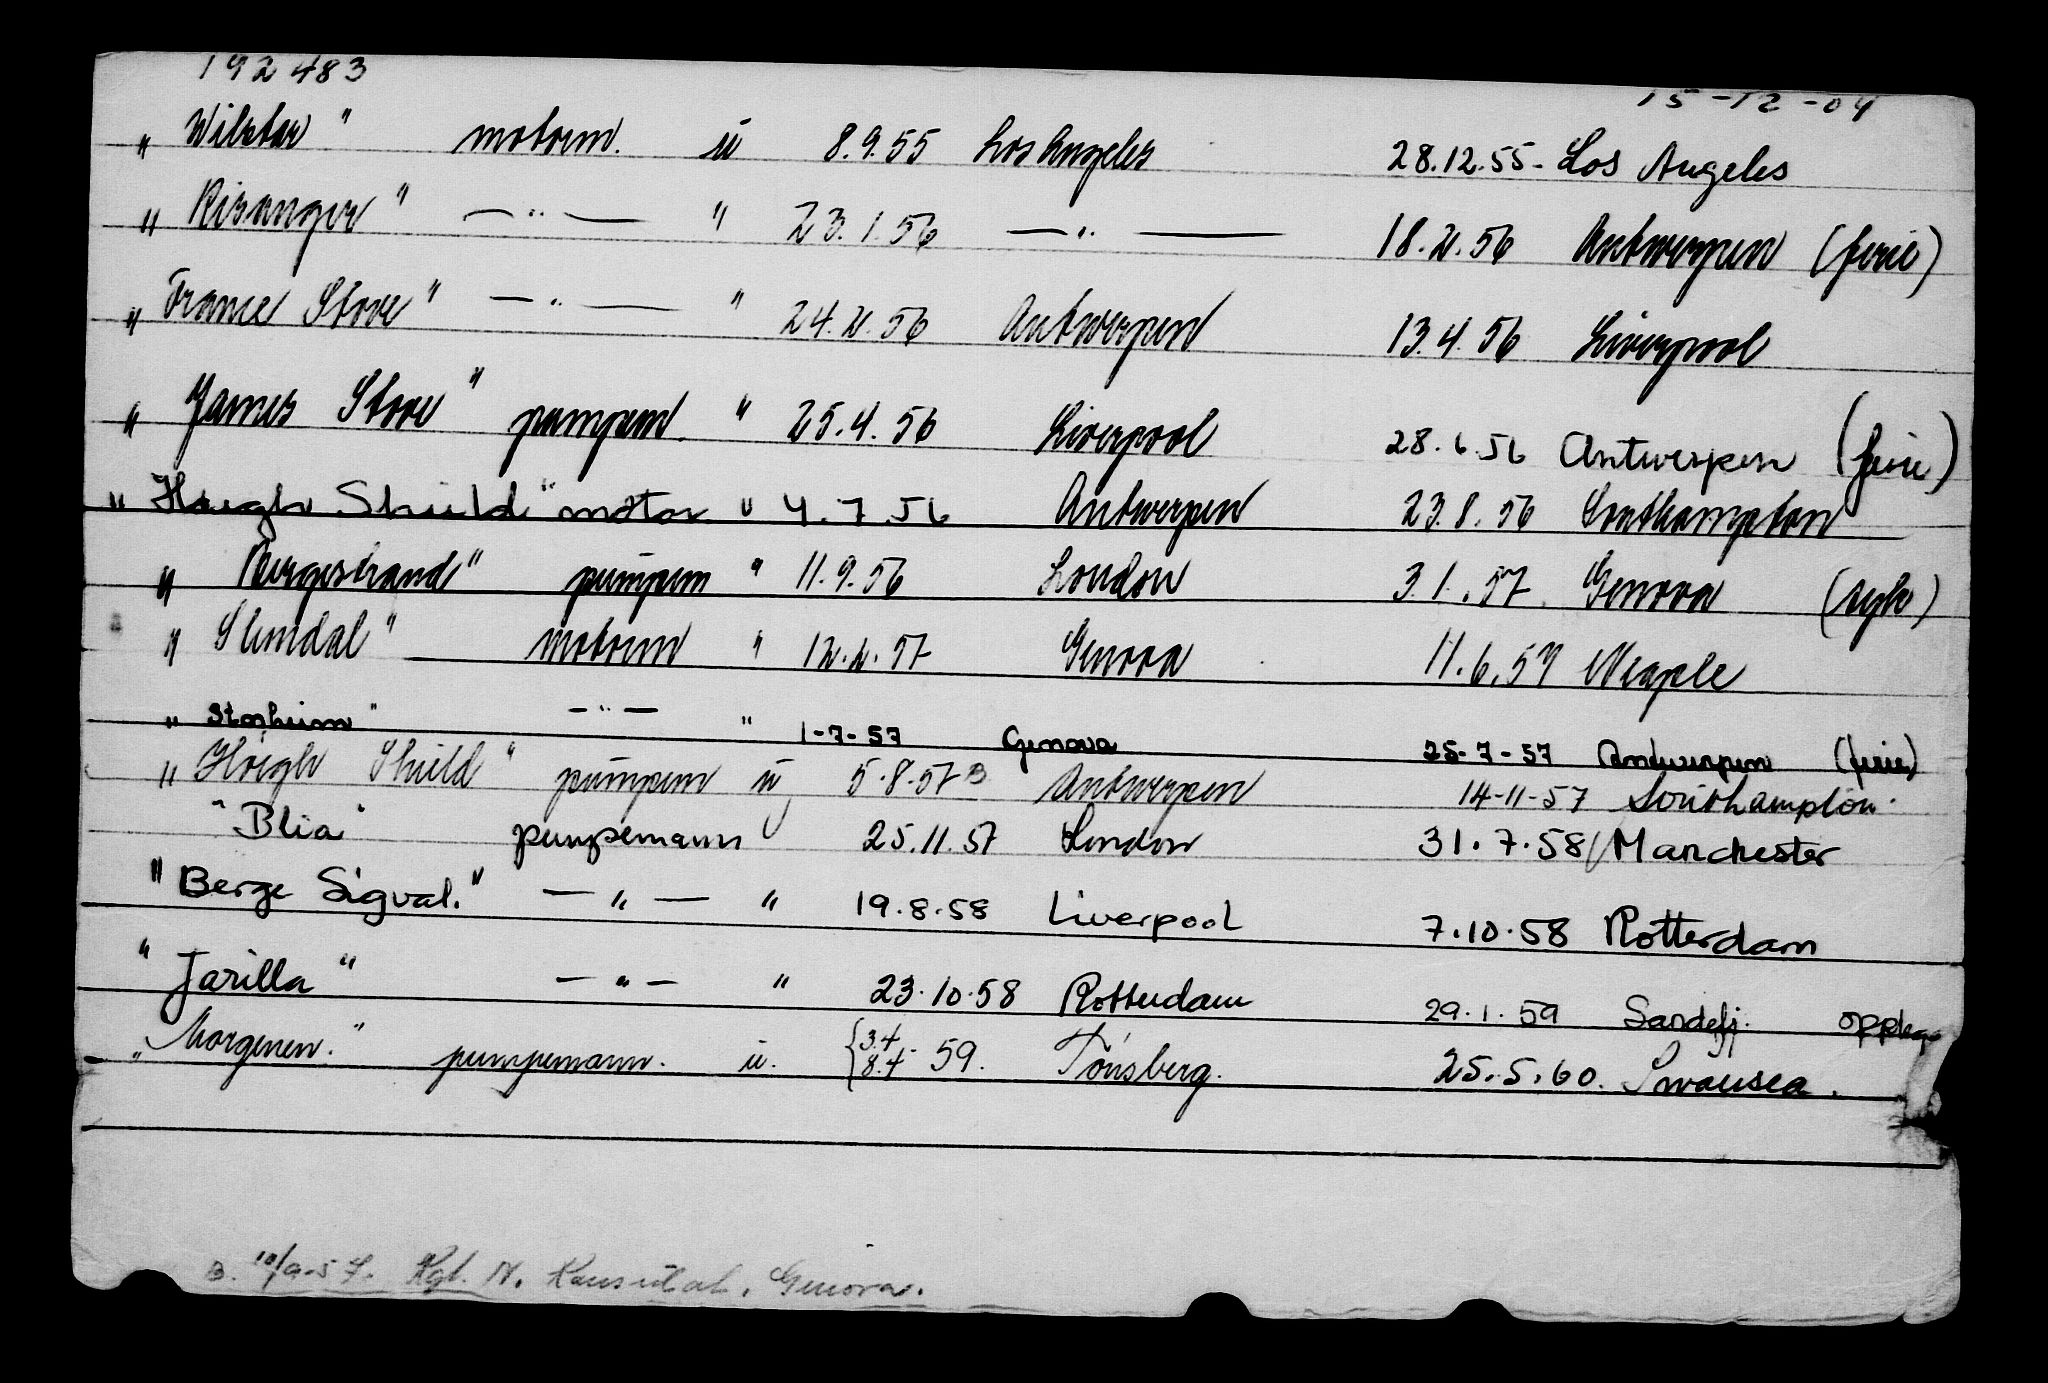 192483 15-12-04
"Wilstar" motorm. u 8.9.55 Los Angeles 28.12.55- Los Angeles
"Risanger" — " — " 23.1.56 — " — 18.2.56 Antwerpen (ferie)
"France Stove" — " — " 24.2.56 Antwerpen 13.4.56 Liverpool
"James Stove" pumpem. " 25.4.56 Liverpool 28.6.56 Antwerpen (ferie)
"Høegh Shield" motor " 4.7.56 Antwerpen 23.8.56 Southampton
"Bergestrand" pumpem " 11.9.56 London 3.1.57. Genova (syk)
" motorm " 12.2.57 Genova 11.6.57 Neaple
"Storheim" — " — " 1-7-57 Genova 25-7-57 Antwerpen (ferie)
"Höegh Shield" pumpem u 5.8.57 B Antwerpen 14-11-57 Southampton.
"Blia" pumpemann 25.11.57 London 31.7.58 Manchester
"Berge Sigval." — " — " 19.8.58 Liverpool 7.10.58 Rotterdam
"Jarilla" — " — " 23.10.58 Rotterdam 29.1.59 Sandefj. opplag
"Morgenen." pumpemann. u. {3.4 8.4 - 59. Tönsberg. 25.5.60. Swansea.
B. 10/9-57. Kgl. N. Konsulat, Genova.